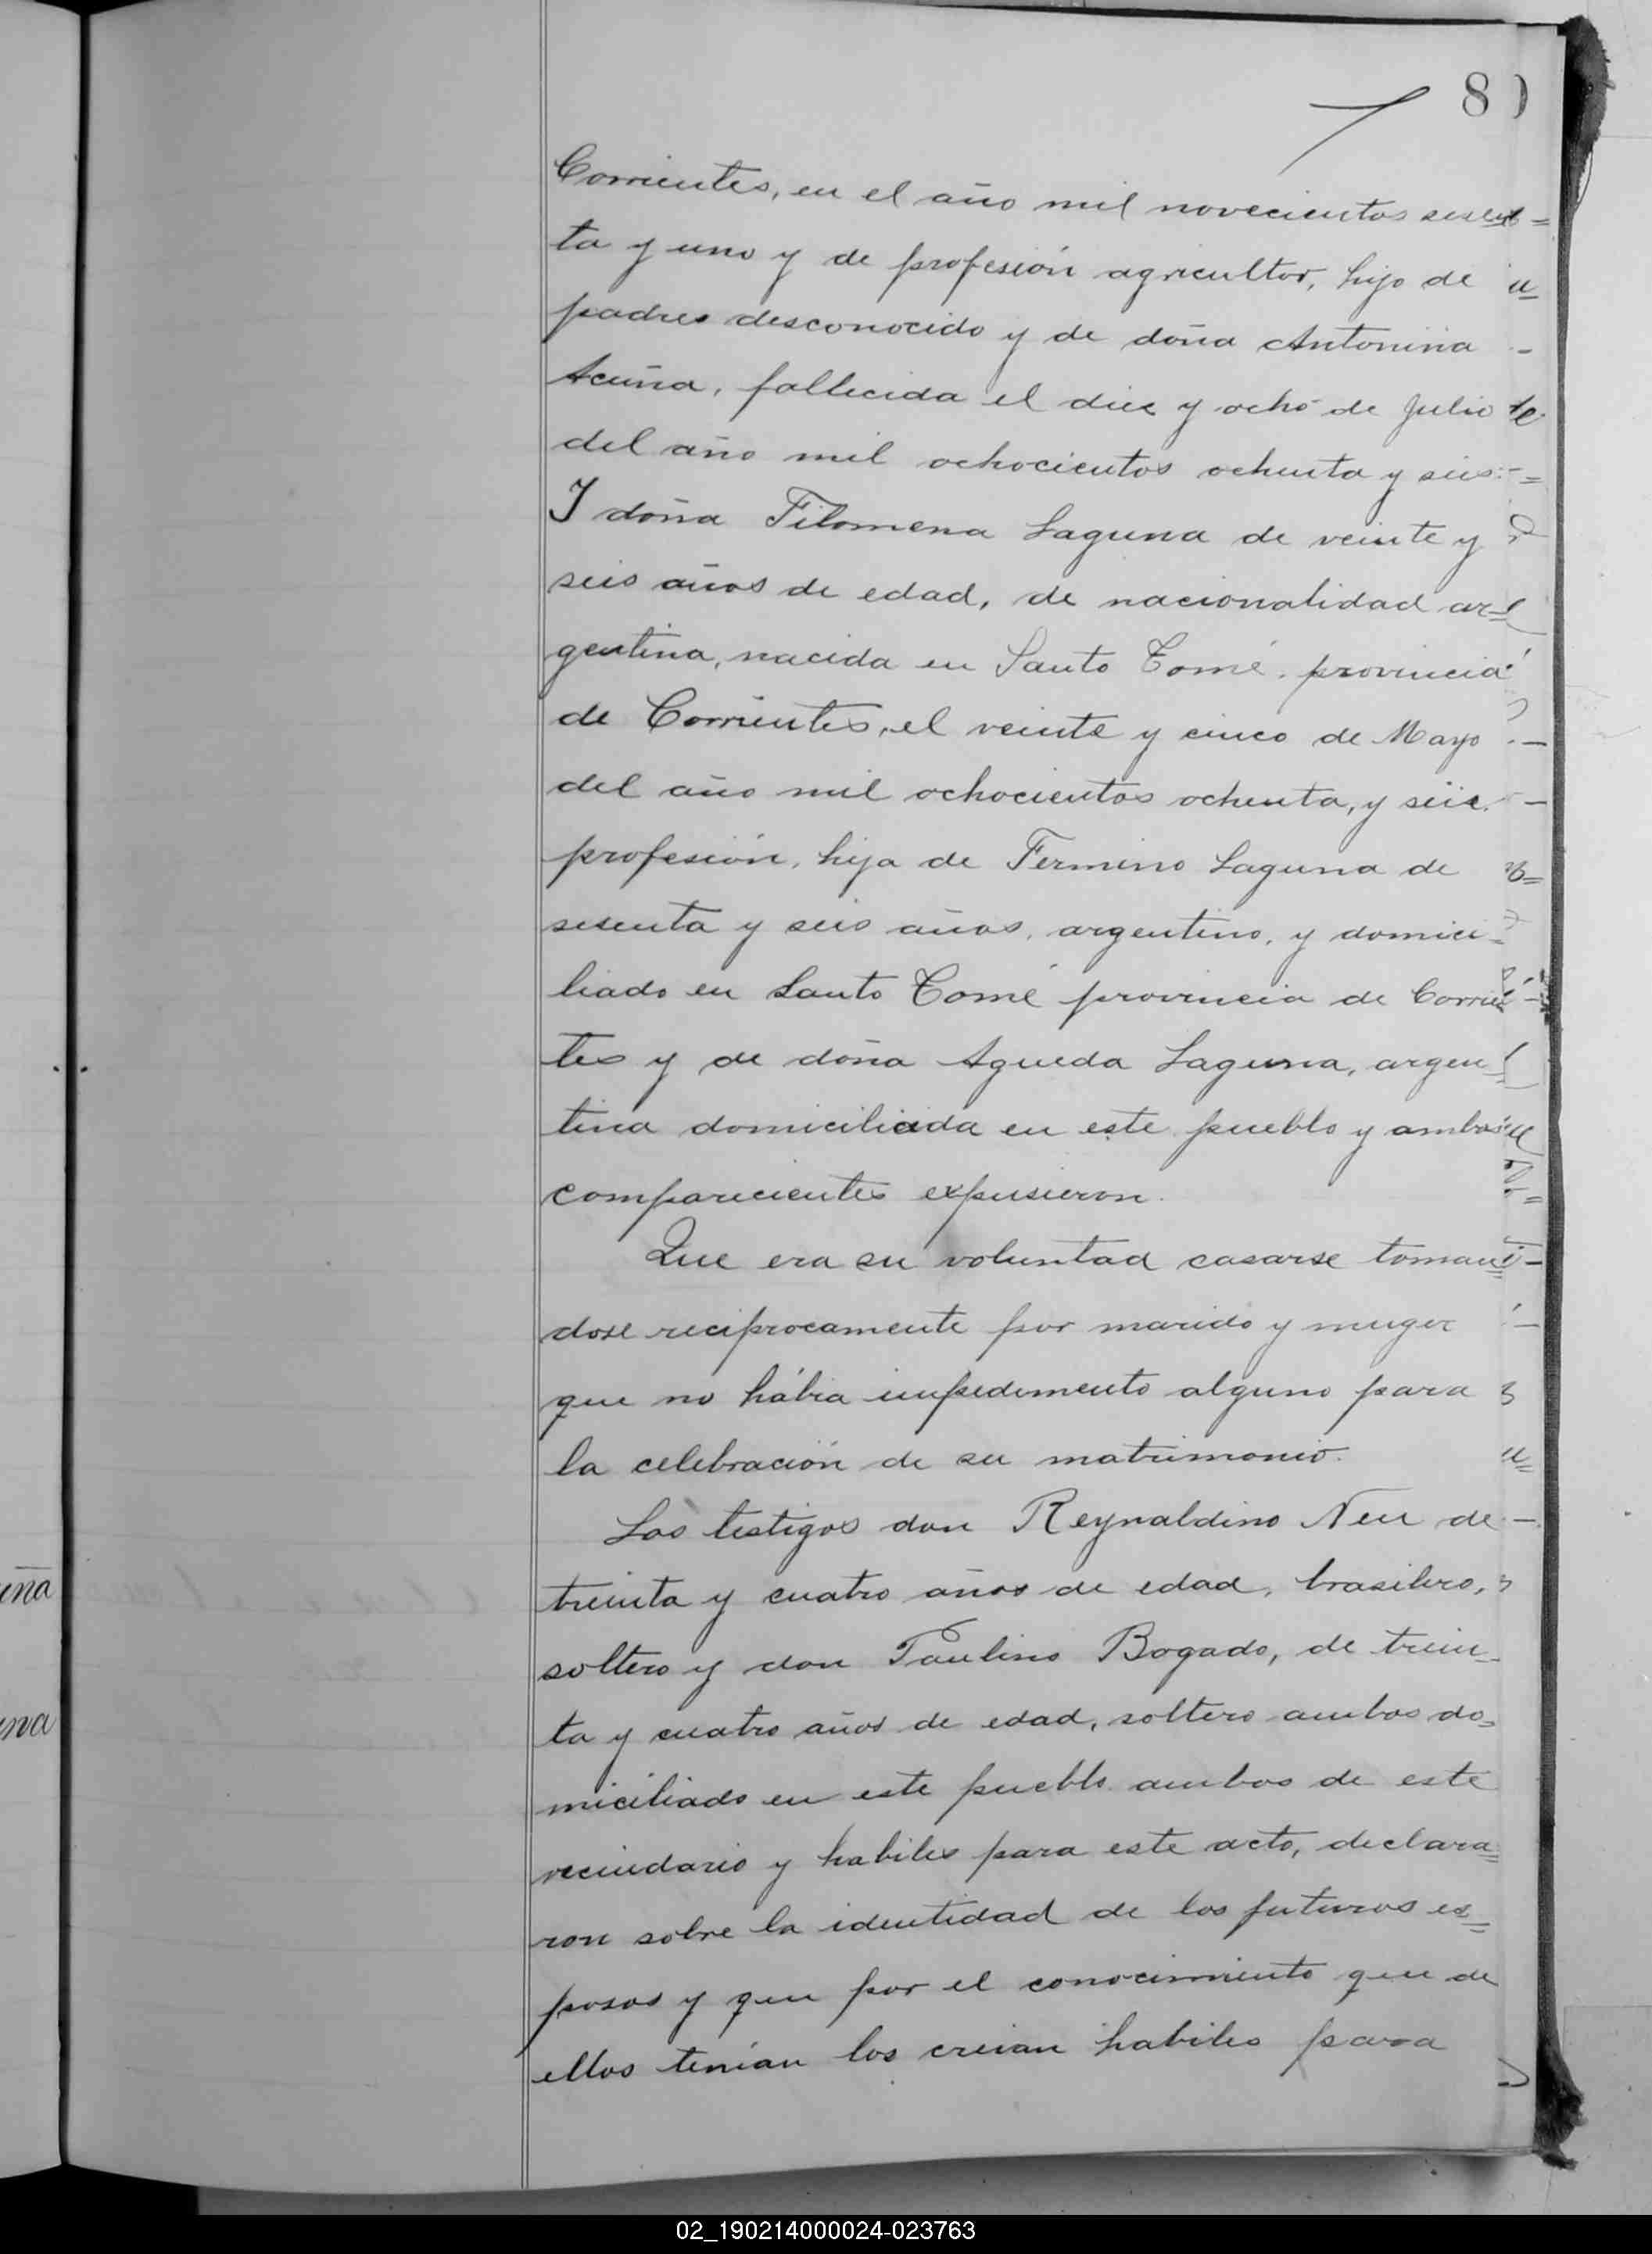 8
Corrientes, en el año mil novecientos sesen=
ta y uno y de profesión agricultor, hijo de
padres desconocido y de doña Antonina
Acuña, fallecida el diez y ocho de Julio
del año mil ochocientos ochenta y seis.
Y doña Filomena Laguna de veinte y
seis años de edad, de nacionalidad ar=
gentina, nacida en Santo Tomé, provincia
de Corrientes, el veinte y cinco de Mayo
del año mil ochocientos ochenta, y seis.
profesión, hija de Fermino Laguna de
sesenta y seis años, argentino, y domici=
liado en Santo Tomé provincia de Corrien
tes y de doña Agueda Laguna, argen
tina domiciliada en este pueblo y ambos
comparecientes expusieron.
Que era su voluntad casarse toman=
dose reciprocamente por marido y muger
que no hábia impedimento alguno para
la celebración de su matrimonio.
Los testigos don Reynaldino Neu de
treinta y cuatro años de edad, brasilero,
soltero y don Paulino Bogado, de trein=
ta y cuatro años de edad, soltero ambos do=
miciliado en este pueblo ambos de este
vecindario y habiles para este acto, declara=
ron sobre la identidad de los futuros es=
posos y que por el conocimiento que de
ellos tenían los creian habiles para
uña
una
02_190214000024-023763